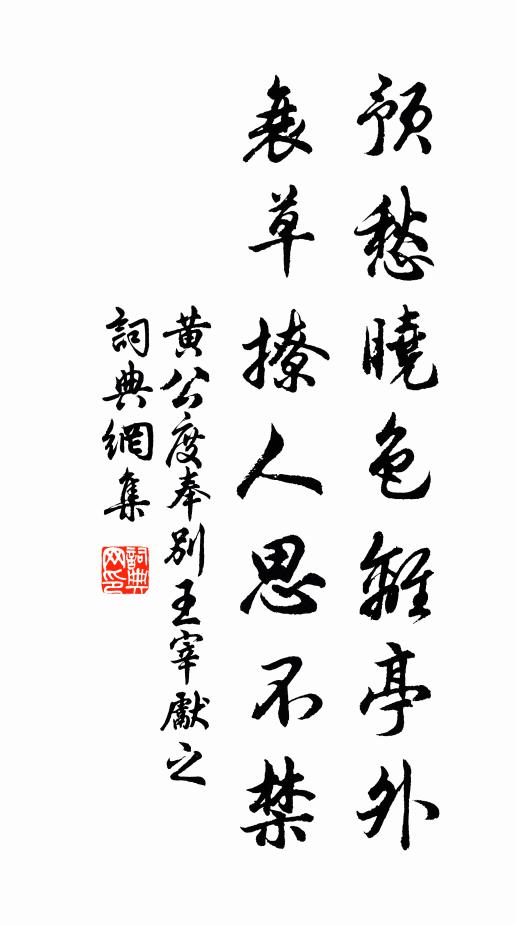 預愁曉色離亭外
衰草撩人思不禁
黃公度奉別王宰獻之
詞典網集
詞典網印